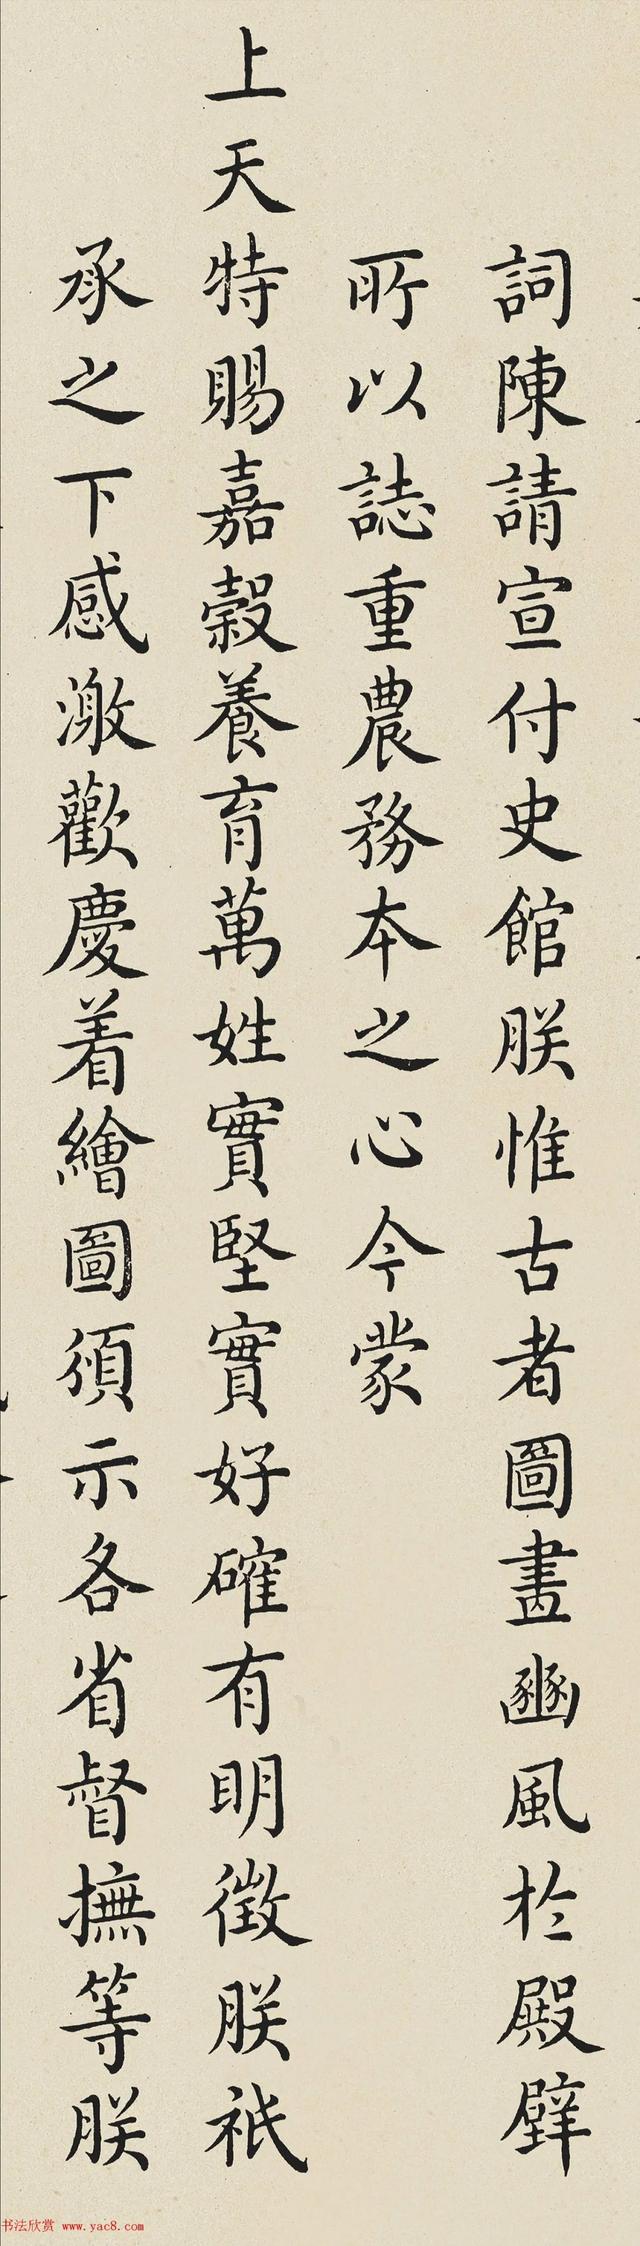 詞陳請宣付史館朕惟古者圖畫豳風於殿壁
所以誌重農務本之心今蒙
上天特賜嘉穀養育萬姓實堅實好確有明徵朕祇
承之下感激歡慶着繪圖頒示各省督撫等朕
书法欣赏 www.yac8.com